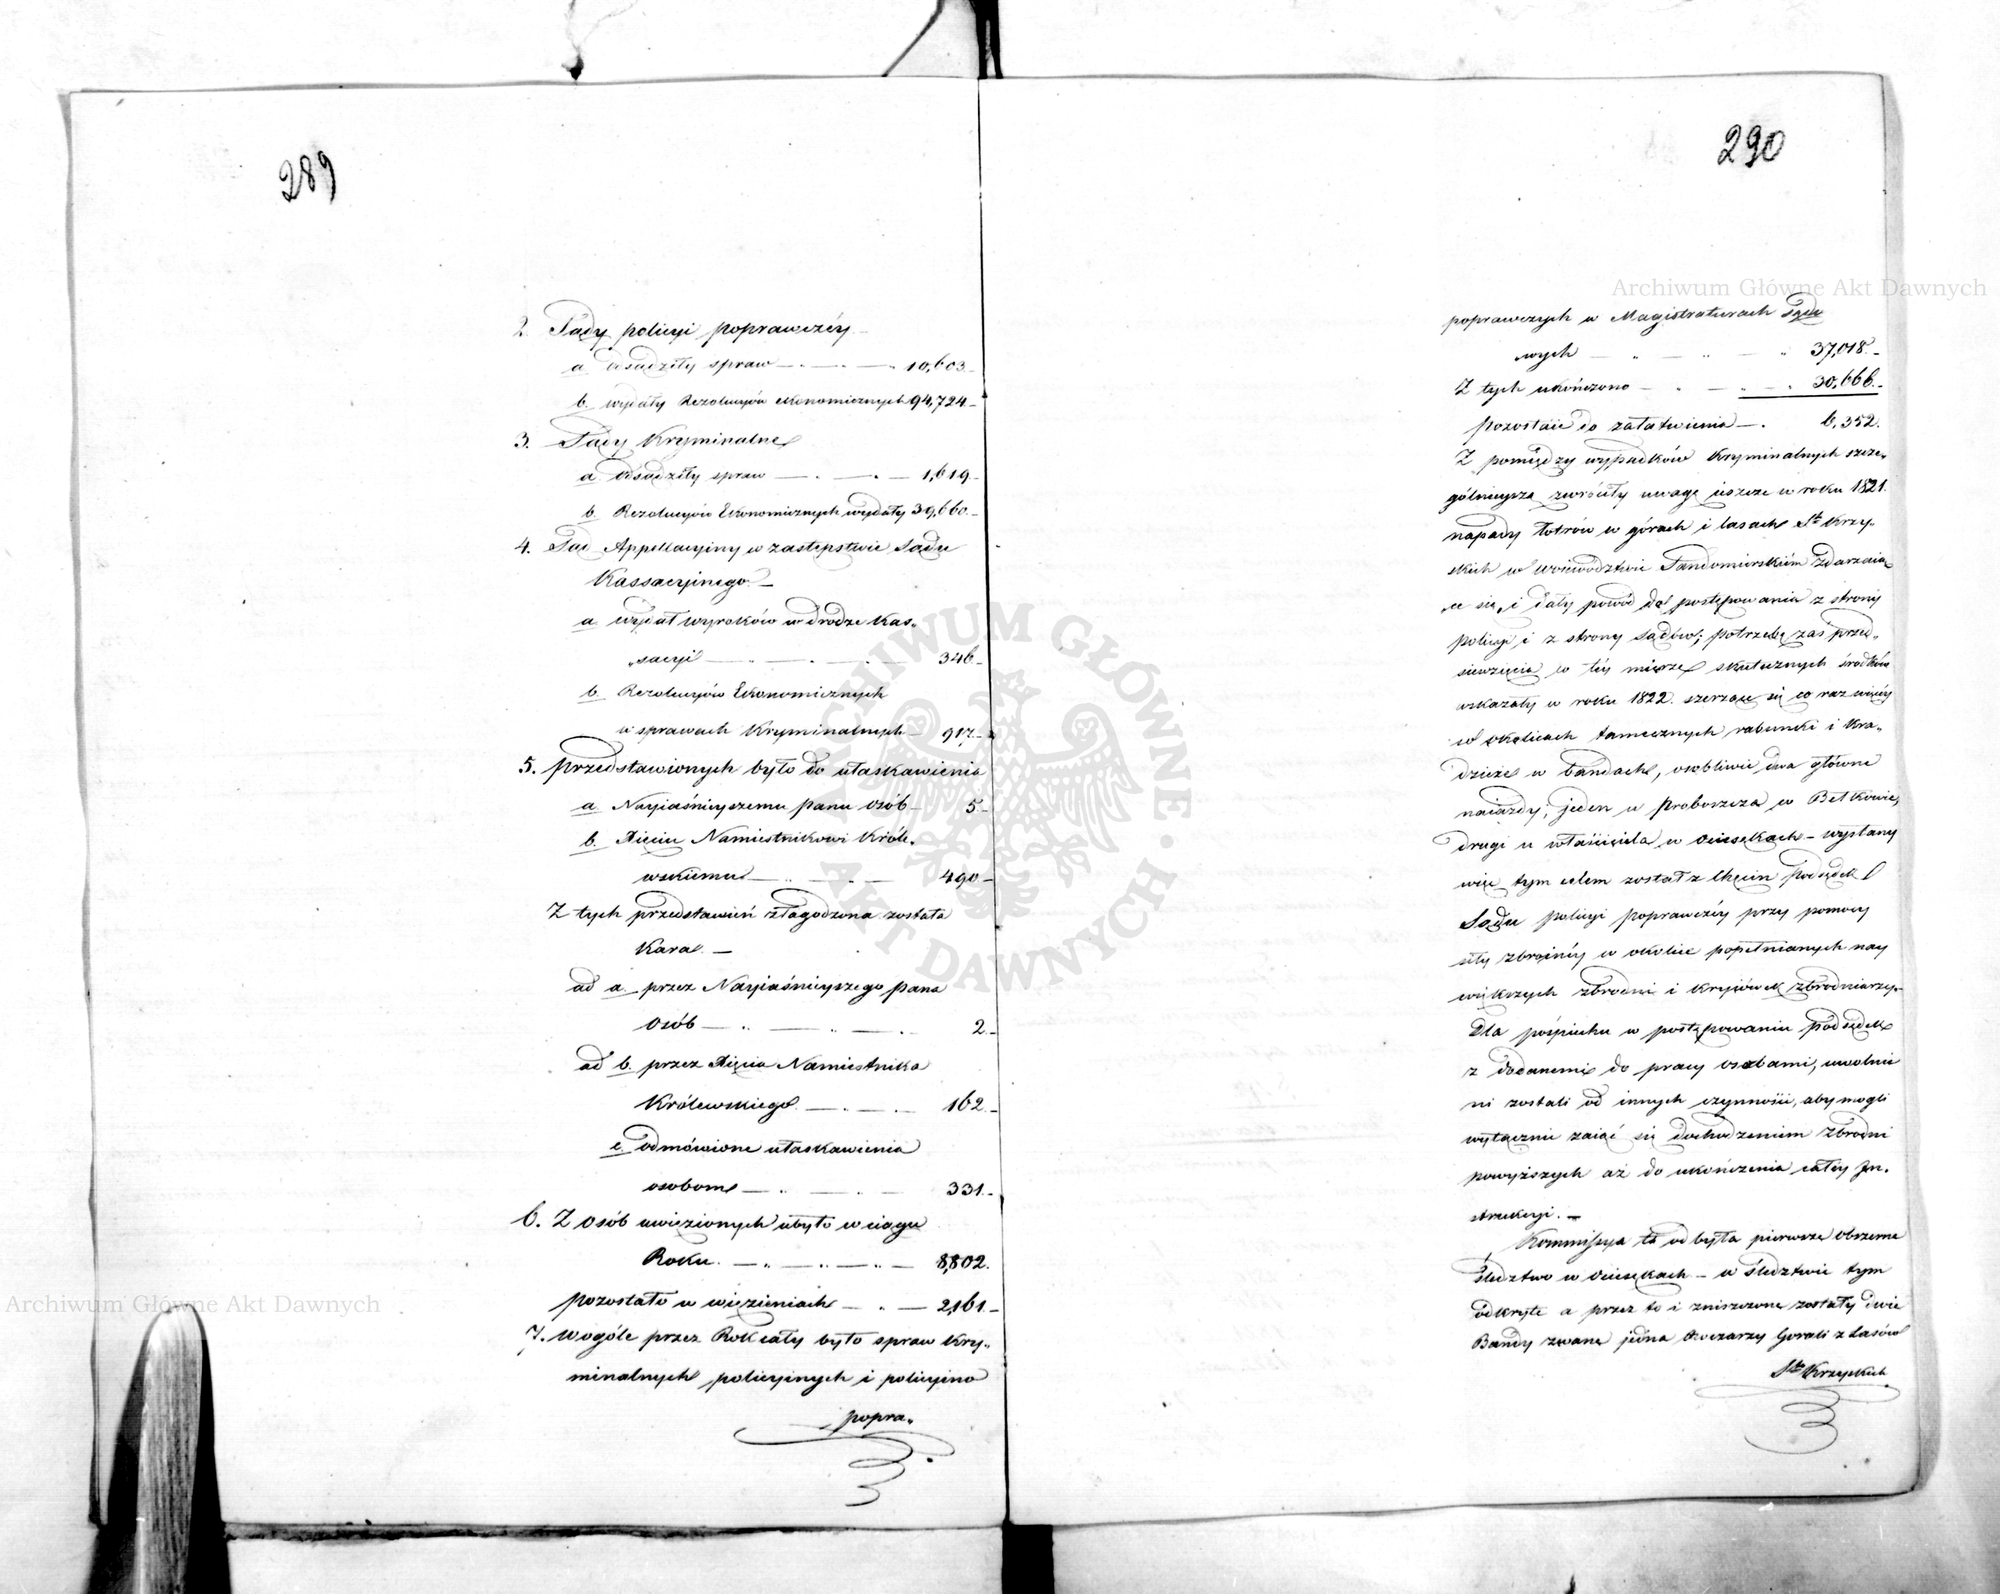 289
2. Sądy policyi poprawczéy
a. Osądziły spraw — 10,603.
b. wydały Rezolucyów ekonomicznych 94,724
3. Sądy Kryminalne
a. Osądziły spraw — 1,619.
b. Rezolucyów Ekonomicznych wydały 39,660.
4. Sąd Appellacyiny w zastępstwie Sądu
Kassacyinego. —
a. wydał wyroków w drodze Kas„
„sacyi — 346.
b. Rezolucyów Ekonomicznych
w sprawach Kryminalnych — 917.
5. przedstawionych było do ułaskawienia
a. Nayiaśnieyszemu panu osób — 5.
b. Xięciu Namiestnikowi Króle„
wskiemu — 490
Z tych przedstawień złagodzona została
Kara. —
ad a. przez Nayiaśnieyszego pana
osób — 2.
ad b. przez Xięcia Namiestnika
Królewskiego — 162.
c. odmówione ułaskawienia
osobom — 331.
6. Z osób uwięzionych ubyło w ciągu
Roku. — 8,802.
pozostało w więzieniach — 2,161.
7. wogóle przez Rok cały było spraw Kry„
minalnych policyinych i policyino
popra„
290
poprawczych w Magistraturach Sądo
„wych — 37,018.
Z tych ukończono — 30,666.
pozostaie do załatwienia — 6,352.
Z pomiędzy wypadków Kryminalnych szcze„
gólnieyszą zwróciły uwagę ieszcze w roku 1821.
napady łotrów w górach i lasach Sto Krzy„
skich w woiewództwie Sandomierskiém zdarzaią„
ce się, i dały powód do postępowania z strony
policyi i z strony Sądów; potrzebę zaś przed„
sięwzięcia w téy mierze skutecznych środków
wskazały w roku 1822. szerzące się co raz więcéy
w okolicach tamecznych rabunki i Kra„
dzieże w bandach, osobliwie dwa główne
naiazdy, jeden u proboszcza w Bełkowie,
drugi u właściciela w Ociesękach — wysłany
więc tym celem został z Chęcin Podsędek
Sądu policyi poprawczéy przy pomocy
siły zbroinéy w okolice popełnianych nay
większych zbrodni i kryiówek zbrodniarzy.
Dla pośpiechu w postępowaniu podsędek
z dodanemi do pracy osobami, uwolnie
ni zostali od innych czynności, aby mogli
wyłącznie zaiąć się dochodzeniem zbrodni
powyższych aż do ukończenia całéy In„
strukcyi. —
Kommissya ta odbyła pierwsze obszerne
śledztwo w Ociesękach — w śledztwie tym
odkryte a przez to i zniszczone zostały dwie
Bandy zwane jedna Owczarzy Gorali z Lasów
Sto Krzyskich
Archiwum Główne Akt Dawnych
ARCHIWUM GŁÓWNE AKT DAWNYCH
Archiwum Główne Akt Dawnych